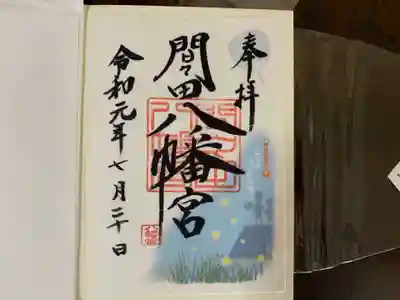 奉拝
間々田八幡宮
令和元年七月二十日